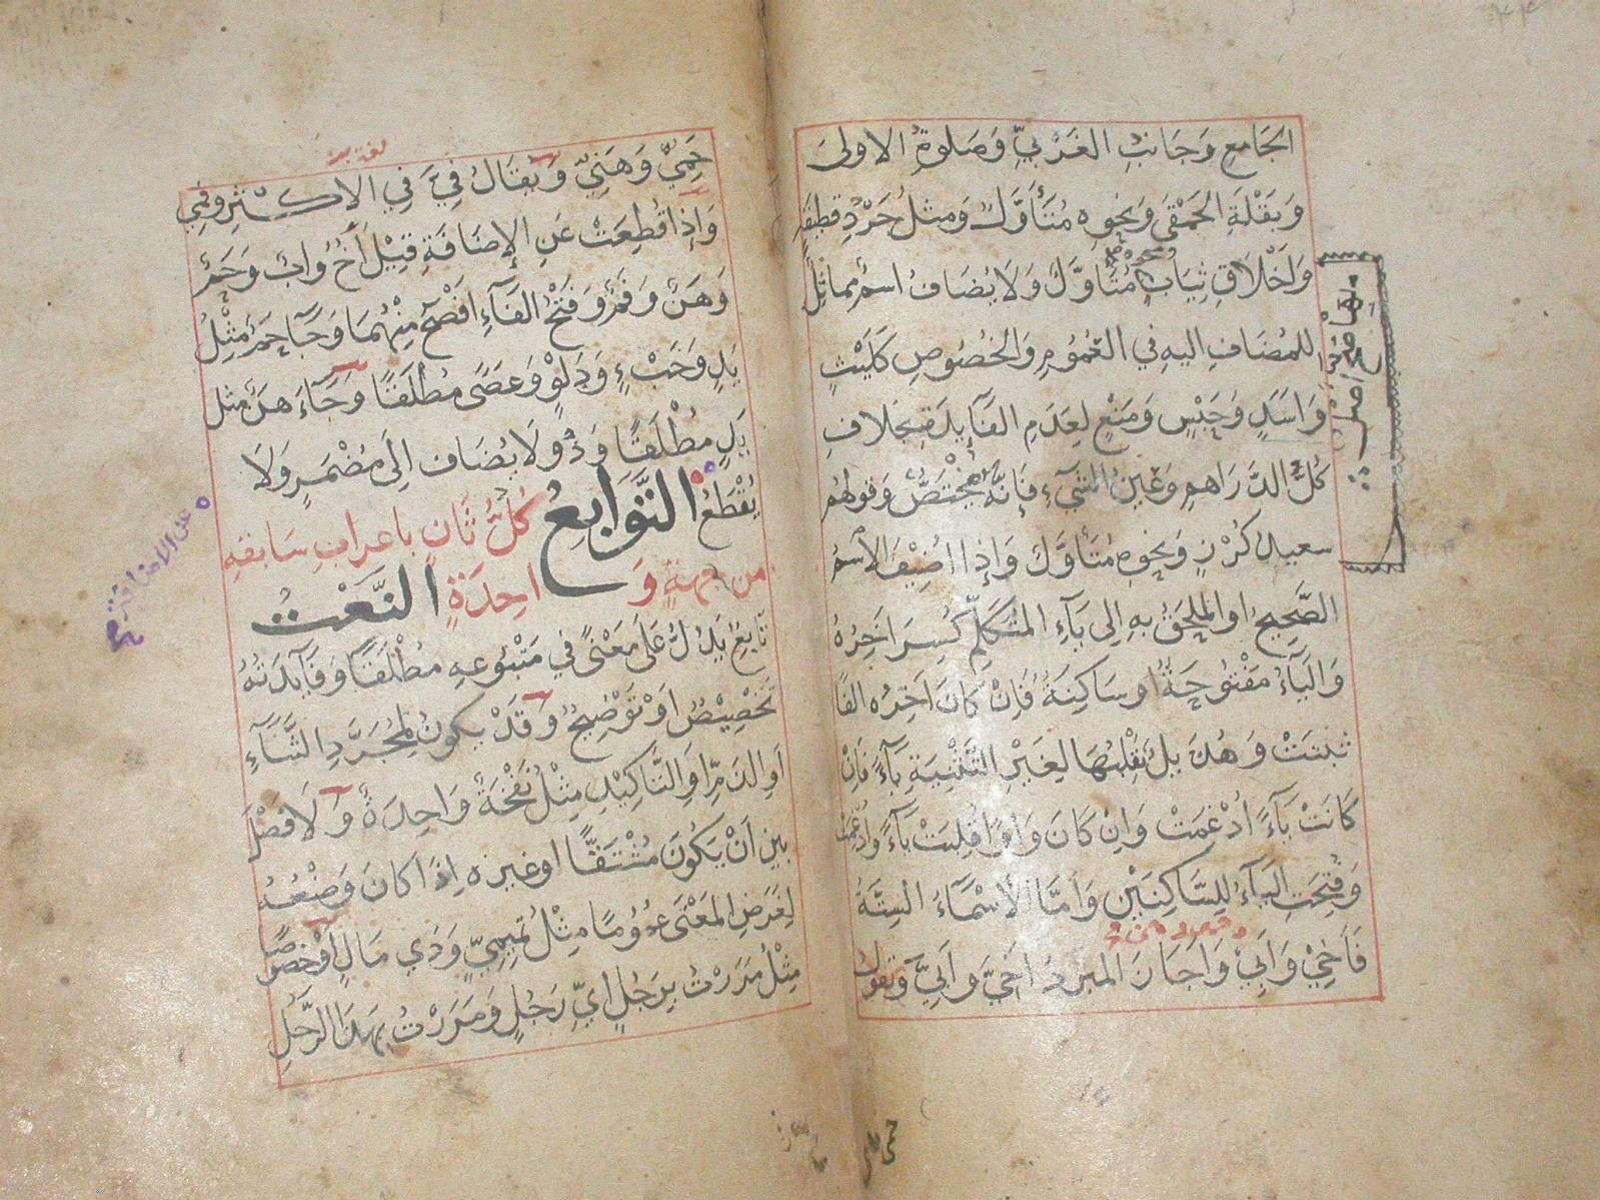 الجَامِعِ وَجَانِبِ الغَرْبِيِّ وَصَلوةِ الاولىَ
وَبَقْلَةِ الحَمْقَى وَنحوِه مُتَأَوَّلٌ وَمثلُ جَرْدِ قطيفَةٍ
وَاَخْلَاقِ ثِيَابٍ مُتَاَوَّلٌ وَلَا يُضَافُ اسمٌ مماثِلٌ
للمُضَافِ اليهِ فِي العُمُومِ وَالخُصُوصِ كَلَيْثٍ
وَاَسَدٍ وَحَبْسٍ وَمَنْعٍ لِعَدَمِ الفَآئِدَةِ بخِلافِ
كُلُّ الدَّرَاهِمِ وَعَيْنُ الشَّيْءِ فَاِنَّهُ يَخْتَصُّ وَقولهُم
سعيدُ كُرْزٍ وَنحوِه مُتَأَوَّلٌ وَاِذَا اُضِيْفَ الاسْمُ
الصَّحِيحُ او المُلحَقُ بهِ اِلى يَآءِ المُتَكَلِّمِ كُسِرَ اخِرُهُ
وَاليَآءُ مَفْتُوحَةٌ او سَاكِنَةٌ فَاِنْ كَانَ اَخِرُه الفًا
ثَبتَتْ وَهُذَيلٌ تَقْلِبُهَا لِغَيْرِ التَّثْنِيَةِ يَآءً فَاِنْ
كَانَتْ يَآءً اُدْغِمَتْ وَاِنْ كَانَ وَاوًا قُلِبَتْ يَآءً وَاُدْغِمَت
وَفُتِحَتِ اليَآءُ لِلسَّاكِنَيْنِ وَاَمَّا الاَسْمَآءُ السِتَّةُ
فَاَخِيْ وَاَبِيْ وَاَجَازَ المبردُ اَخِيَّ وَاَبِيَّ وَتقولُ
حَمِيْ وَهَنِيْ وَيُقَالُ فِيَّ فِي الاَكْثَرِ وَفمِي
وَاِذَا قُطِعَتْ عَنِ الاِضَافَةِ قِيْلَ اَخٌ وابٌ وَحَمٌ
وَهَنٌ وَفَمٌ وَفَتْحُ الفَآءِ اَفْصَحُ مِنْهُمَا وَجَآءَ حَمٌ مِثْلُ
يَدٍ وَخَبْءٍ وَدَلْوٍ وَعَصًى مُطْلَقًا وَجَآءَ هَنٌ مثل
يَدٍ مُطْلَقًا وَذُو لَا يُضَاف اِلَى مُضْمَرٍ وَلَا
يُقْطَعُ التَّوَابِعُ كُلُّ ثَانٍ باعرابِ سَابقهِ
من جهةٍ وَاحِدَةٍ النَّعْتُ
تَابِعٌ يَدُلُّ عَلَى مَعْنًى فِي مَتْبُوعِهِ مُطْلَقًا وَفَآئِدَتُهُ
تَخْصِيْصٌ اَوْ تَوْضِيحٌ وَقَدْ يَكونُ لِمُجَرَّدِ الثَّنَآءِ
اَوِ الذَمِّ اَوِ التَّاكِيْدِ مِثْلُ نَفْخَةٌ وَاحِدَةٌ وَلَا فَصْلَ
بَيْنَ اَنْ يَكُونَ مُشْتَقًّا او غيرَه اِذَا كانَ وَضْعُهُ
لِغَرَضِ المَعْنَى عُمُومًا مِثْلُ تَمِيمِيٍّ وَذِي مَالٍ اَوْ خُصُوصًا
مِثْلُ مَرَرْتُ بِرَجُلٍ ايِّ رَجُلٍ وَمَرَرْتُ بِهَذَا الرَّجُلِ